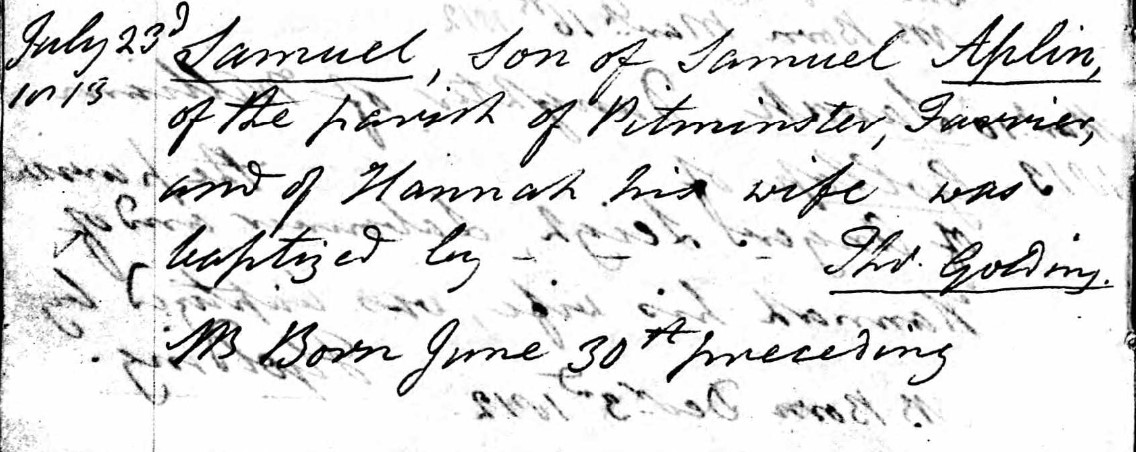 July 23d Samuel, son of Samuel Aplin,
1813 of the parish of Pitminster, Farrier,
and of Hannah his wife was
baptized by Tho. Golding.
NB Born June 30th preceding